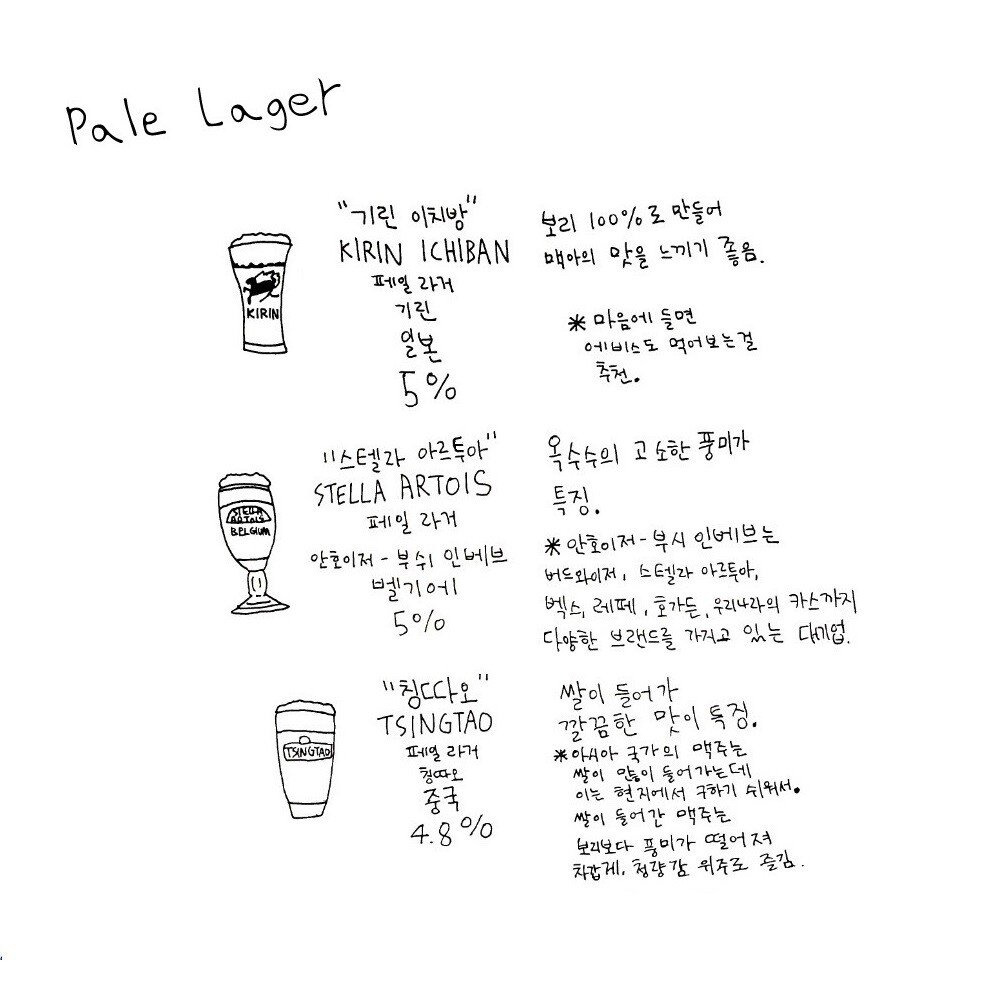 Pale Lager
"기린 이치방"
KIRIN ICHIBAN
페일 라거
기린
일본
5%
KIRIN
보리 100%로 만들어
맥아의 맛을 느끼기 좋음.
* 마음에 들면
에비스도 먹어보는걸
추천.
"스텔라 아르투아"
STELLA ARTOIS
페일 라거
안호이저-부쉬 인베브
벨기에
5%
STELLA
ARTOIS
BELGIUM
옥수수의 고소한 풍미가
특징.
* 안호이저-부시 인베브는
버드와이저, 스텔라 아르투아,
벡스, 레페, 호가든, 우리나라의 카스까지
다양한 브랜드를 가지고 있는 대기업.
"칭따오"
TSINGTAO
페일 라거
칭따오
중국
4.8%
TSINGTAO
쌀이 들어가
깔끔한 맛이 특징.
* 아시아 국가의 맥주는
쌀이 많이 들어가는데
이는 현지에서 구하기 쉬워서.
쌀이 들어간 맥주는
보리보다 풍미가 떨어져
차갑게, 청량감 위주로 즐김.